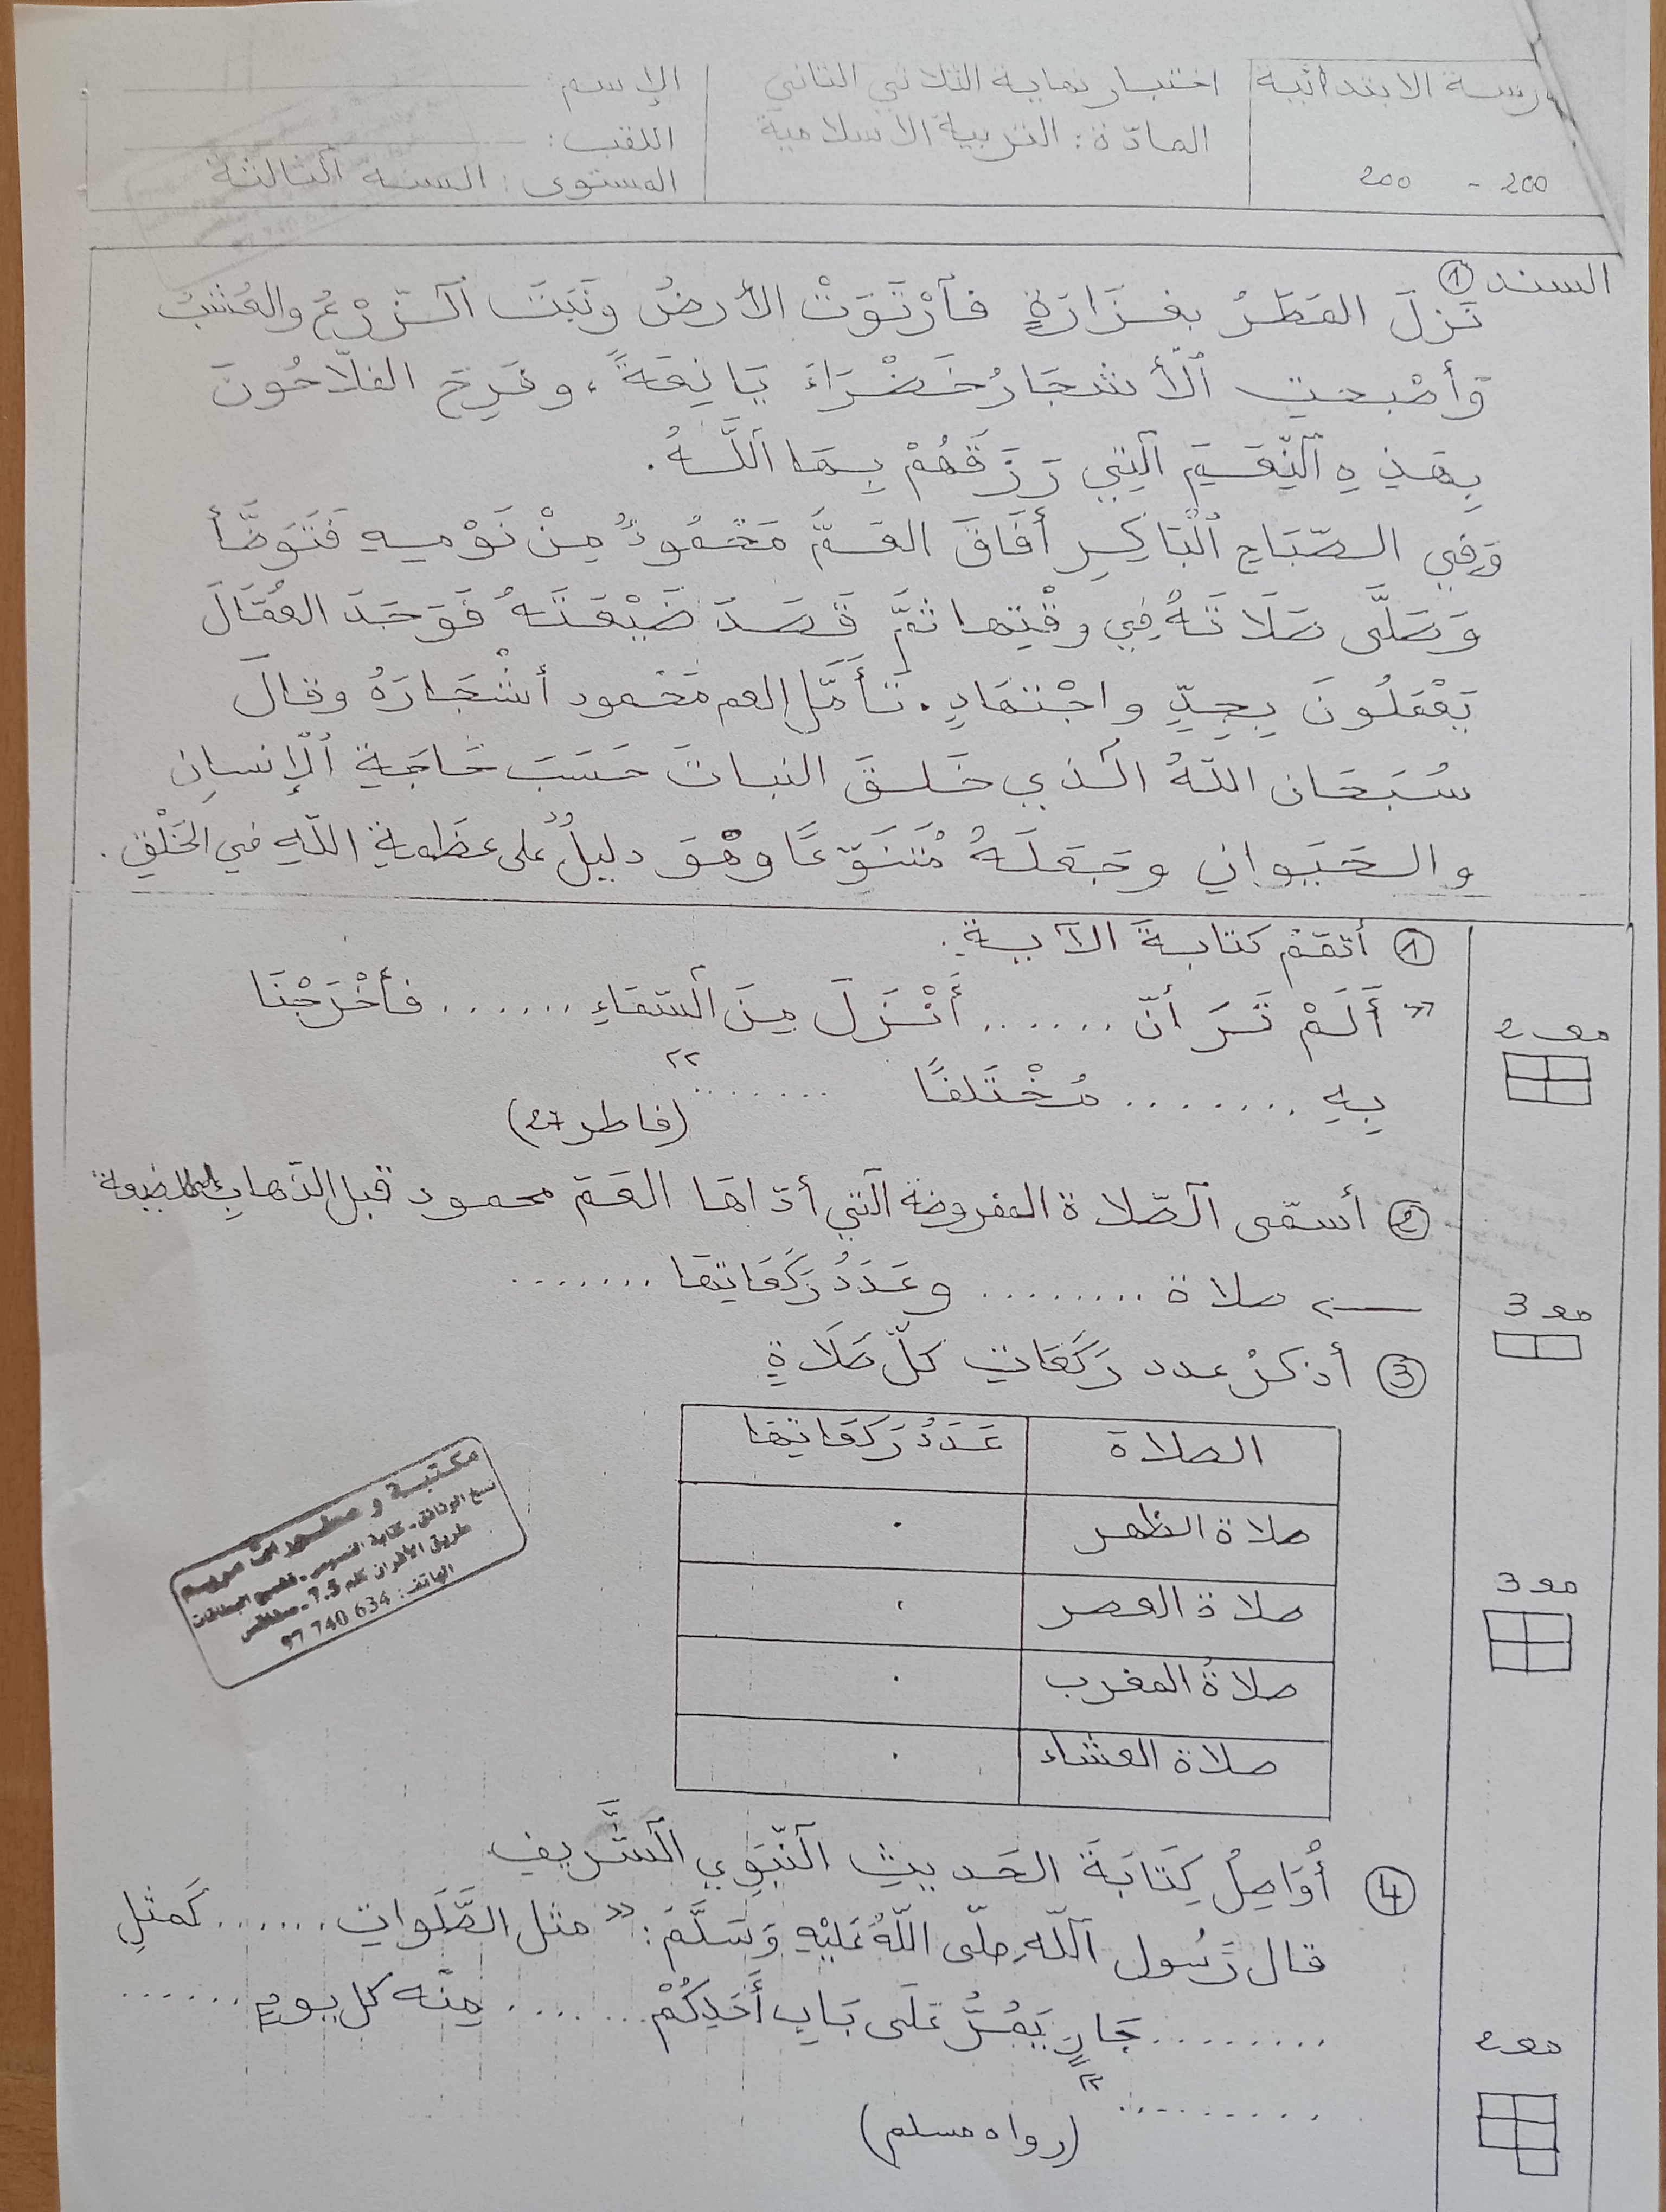 رسة الابتدائية
200 - 200
اختبار نهاية الثلاثي الثاني
المادّة: التربية الاسلامية
الإسم:
اللقب:
المستوى: السنة الثالثة
السند ①
نَزلَ المَطَرُ بغَزَارَةٍ فَٱرْتَوَتْ الأرضُ ونَبَتَ ٱلزّرْعُ والعُشبُ
وَأصْبحت ٱلْأشجَارُ خَضْرَاءَ يَانِعَةً، وفَرِحَ الفلّاحُونَ
بِهَذِهِ ٱلنِّعَمِ ٱلتِي رَزَقَهُمْ بِهَا ٱللَّهُ.
وَفِي الصّبَاحِ ٱلْبَاكِرِ أَفَاقَ العَمُّ مَحْمُودٌ مِنْ نَوْمِهِ فَتَوَضَّأ
وَصَلَّى صَلَاتَهُ فِي وقْتِها ثمَّ قَصَدَ ضَيْعَتَهُ فَوَجَدَ العُمَّالَ
يَعْمَلُونَ بِجِدٍّ واجْتهَادٍ. تَأَمَّل العم مَحْمود أشْجَارَهُ وقالَ
سُبَحَان اللّهُ الذي خَلقَ النباتَ حَسَبَ حَاجَةِ ٱلْإنسانِ
والحَيَوانِ وجَعَلَهُ مُتَنَوّعًا وهُوَ دليلٌ على عظمةِ اللّهِ في الخَلْقِ.
① أتمّمُ كتابةَ الآية.
" أَلَمْ تَرَ أنّ ...... أَنْزَلَ مِنَ ٱلسّمَاءِ ....... فأخْرَجْنَا
بِهِ ........ مُخْتَلفًا ........"
(فاطر 27)
مع 2
② أسمّى ٱلصّلاة المفروضة ٱلتي أدّاهَا العَمّ محمود قبل الذّهاب إلى الضيعة
← صلاة ......... وعَدَدُ رَكَعَاتِهَا .......
مع 3
③ أذكرُ عدد رَكَعَاتِ كلّ صَلَاةٍ
الصلاة عَدَدُ رَكَعَاتِهَا
صلاة الظهر
صلاة العصر
صلاةُ المغرب
صلاة العشاء
مع 3
مكتبة و مطبوعات مريم
نسخ الوثائق - كتابة النصوص - تصميم البطاقات
طريق الأفران كلم 7.5 - صفاقس
الهاتف: 97 740 634
④ أُوَاصِلُ كِتَابَةَ الحَديثِ ٱلنّبَوِي ٱلشَّريفِ
قال رَسُول ٱللّهِ صلّى اللّهُ عَليْهِ وَسَلَّمَ: " مثل الصَّلَواتِ ....... كَمثلِ
......... جَارٍ يَمُرُّ عَلَى بَابِ أَحَدِكُمْ ........ مِنْه كل يومٍ ......
........."
(رواه مسلم)
مع 2